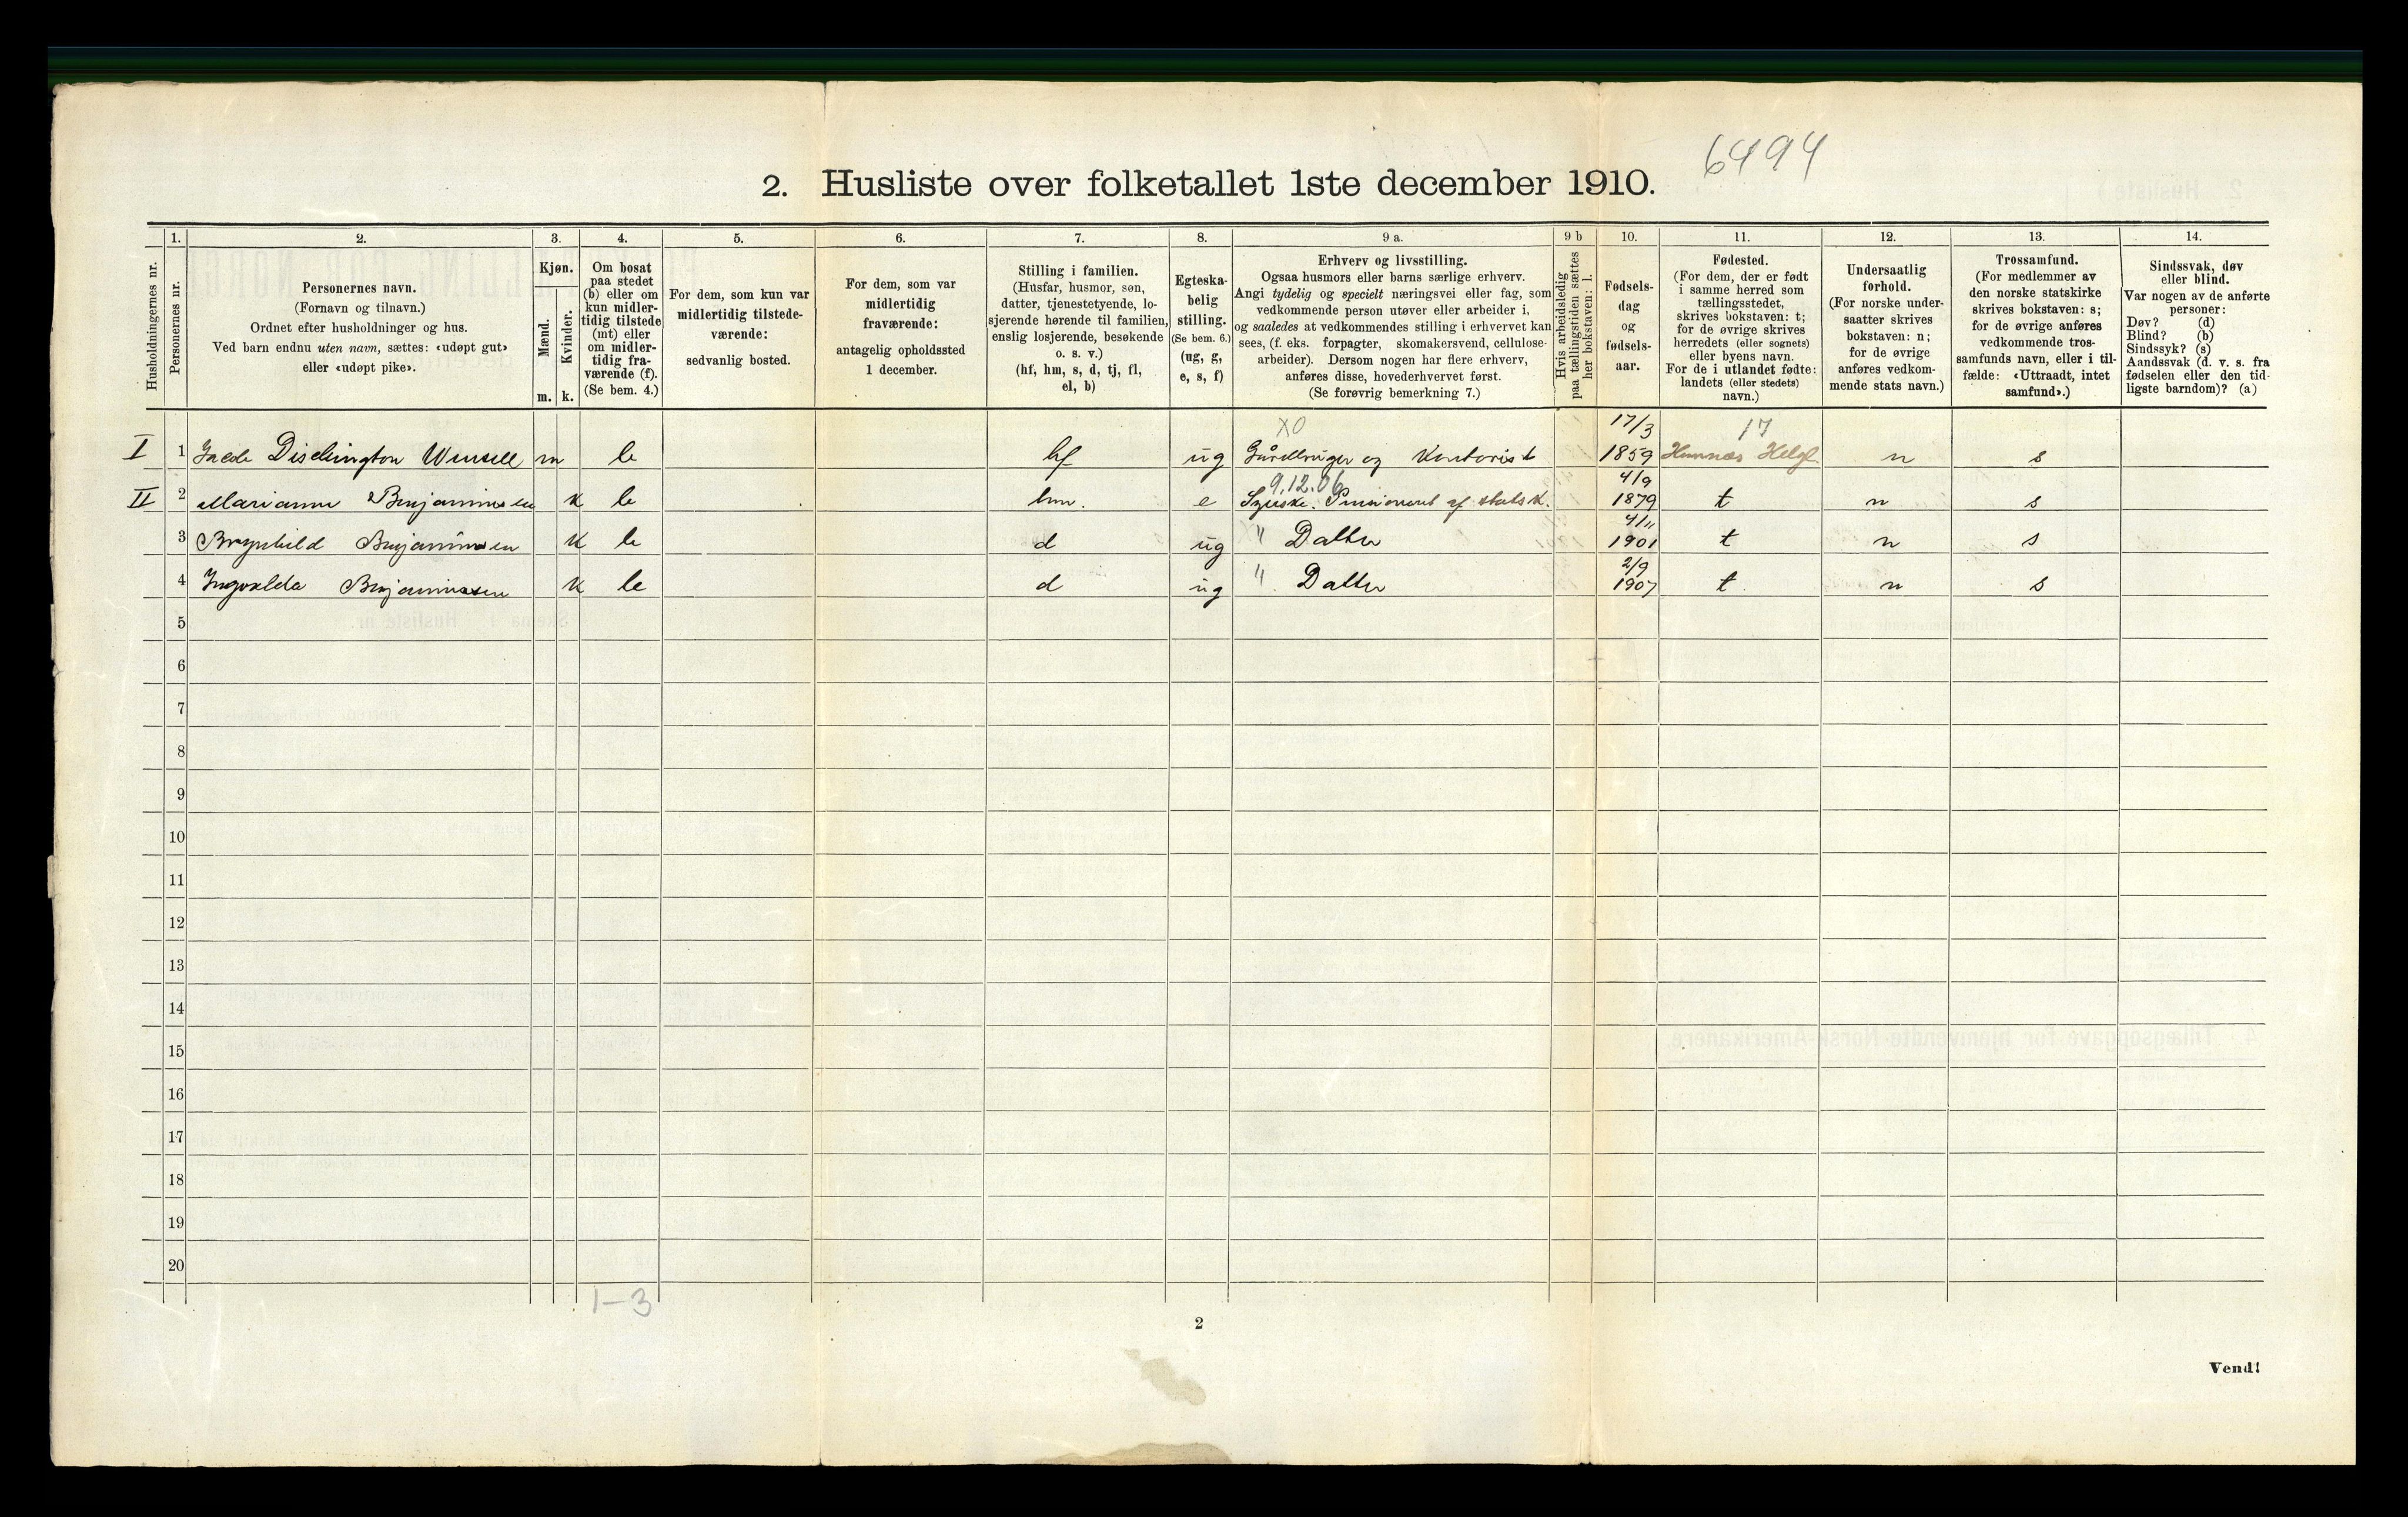 6494
2. Husliste over folketallet 1ste december 1910.
Husholdningernes nr.
1. Personernes nr.
2.
Personernes navn.
(Fornavn og tilnavn.)
Ordnet efter husholdninger og hus.
Ved barn endnu uten navn, sættes: «udøpt gut»
eller «udøpt pike».
3.
Kjøn.
Mænd.
Kvinder.
m. k.
4.
Om bosat
paa stedet
(b) eller om
kun midler-
tidig tilstede
(mt) eller
om midler-
tidig fra-
værende (f).
(Se bem. 4.)
5.
For dem, som kun var
midlertidig tilstede-
værende:
sedvanlig bosted.
6.
For dem, som var
midlertidig
fraværende:
antagelig opholdssted
1 december.
7.
Stilling i familien.
(Husfar, husmor, søn,
datter, tjenestetyende, lo-
sjerende hørende til familien,
enslig losjerende, besøkende
o. s. v.)
(hf, hm, s, d, tj, fl,
el, b)
8.
Egteska-
belig
stilling.
(Se bem. 6.)
(ug, g,
e, s, f)
9 a.
Erhverv og livsstilling.
Ogsaa husmors eller barns særlige erhverv.
Angi tydelig og specielt næringsvei eller fag, som
vedkommende person utøver eller arbeider i,
og saaledes at vedkommendes stilling i erhvervet kan
sees, (f. eks. forpagter, skomakersvend, cellulose-
arbeider). Dersom nogen har flere erhverv,
anføres disse, hovederhvervet først.
(Se forøvrig bemerkning 7.)
9 b
Hvis arbeidsledig
paa tællingstiden sættes
her bokstaven: l.
10.
Fødsels-
dag
og
fødsels-
aar.
11.
Fødested.
(For dem, der er født
i samme herred som
tællingsstedet,
skrives bokstaven: t;
for de øvrige skrives
herredets (eller sognets)
eller byens navn.
For de i utlandet fødte:
landets (eller stedets)
navn.)
12.
Undersaatlig
forhold.
(For norske under-
saatter skrives
bokstaven: n;
for de øvrige
anføres vedkom-
mende stats navn.)
13.
Trossamfund.
(For medlemmer av
den norske statskirke
skrives bokstaven: s;
for de øvrige anføres
vedkommende tros-
samfunds navn, eller i til-
fælde: «Uttraadt, intet
samfund».)
14.
Sindssvak, døv
eller blind.
Var nogen av de anførte
personer:
Døv? (d)
Blind? (b)
Sindssyk? (s)
Aandssvak (d. v. s. fra
fødselen eller den tid-
ligste barndom)? (a)
X0 17/3 17
I 1 Dischington m b hf ug Gårdbruger og Kontorist 1859 Helgl. n s
9.12.06 4/9
II 2 Marianne Benjaminsen k b hm. e af statsk. 1879 t n s
4/11
3 Brynhild Benjaminsen k b d ug " Datter 1901 t n s
2/9
4 Ingvalda Benjaminsen k b d ug " Datter 1907 t n s
5
6
7
8
9
10
11
12
13
14
15
16
17
18
19
20
1-3
2
Vend!